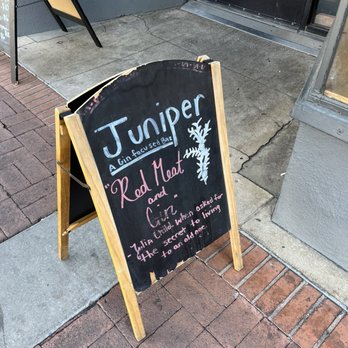 Juniper
A Gin Focused Bar
"Red Meat
and
Gin"
- Julia Child when asked for
the secret to living
to an old age.